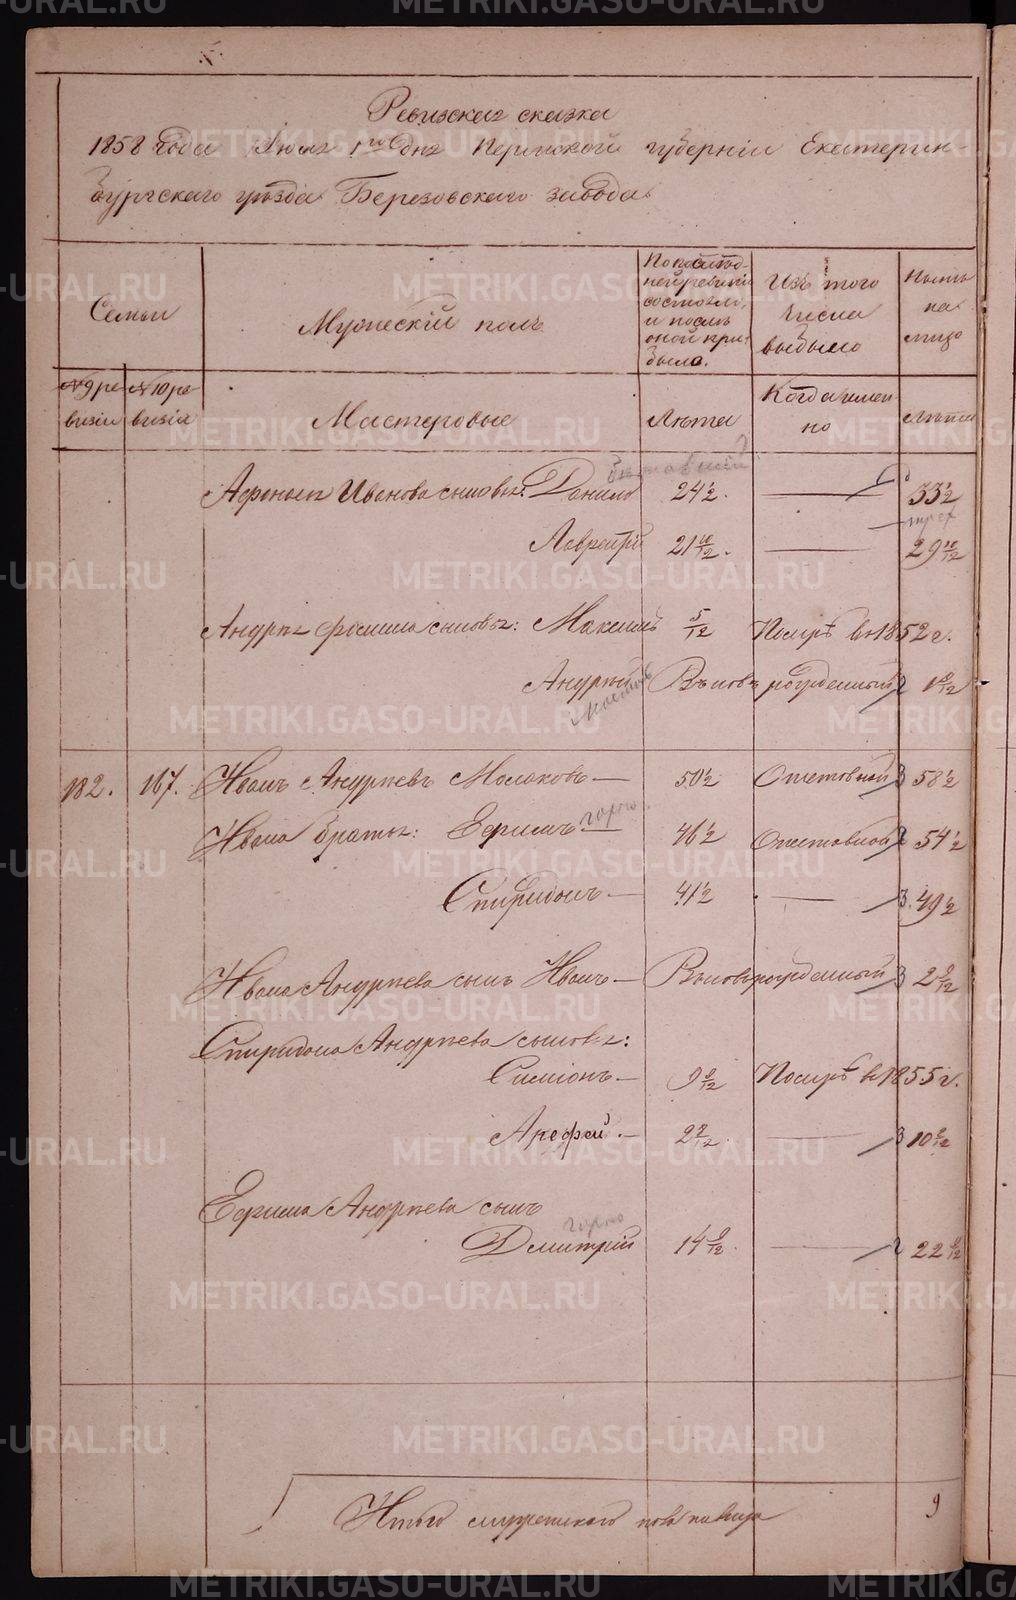 Ревизская сказка
1858 года Июня 1го дня Пермской губернии Екатерин-
бургского уезда Березовского завода
Семьи
Мужеский полъ
По послѣд-
ней ревизіи
состояло,
и послѣ
оной при-
было.
Изъ того
числа
выбыло
Нынѣ
на
лицо
№ 9 ре
визіи
№ 10 ре
визіи
Мастеровые
Лѣта
Когда имен
но
Лѣта
Афонасья Иванова сыновья: Данило 24½. — 33½
Лаврентій 21 10/12. — 29 10/12
Андрея сыновья: Максимъ 5/12 Померъ въ 1852 г.
Андрей Вновь рожденный 2 1 8/12
182. 167. Иванъ Андреевъ — 50½ Отставной 3 58½
Ивана братья: Ефимъ — 46½ Отставной 2 54½
Спиридонъ — 41½ — 3. 49½
Ивана Андреева сынъ Иванъ — Вновь рожденный 3 2 9/12
Спиридона Андреева сыновья:
Симіонъ — 9 8/12 Померъ въ 1855 г.
Арефей. — 2 2/12. — 3 10 2/12
Ефима Андреева сынъ
Дмитрій 14 8/12. — 2 22 8/12
Итого мужескаго пола на лицо 9
METRIKI.GASO-URAL.RU